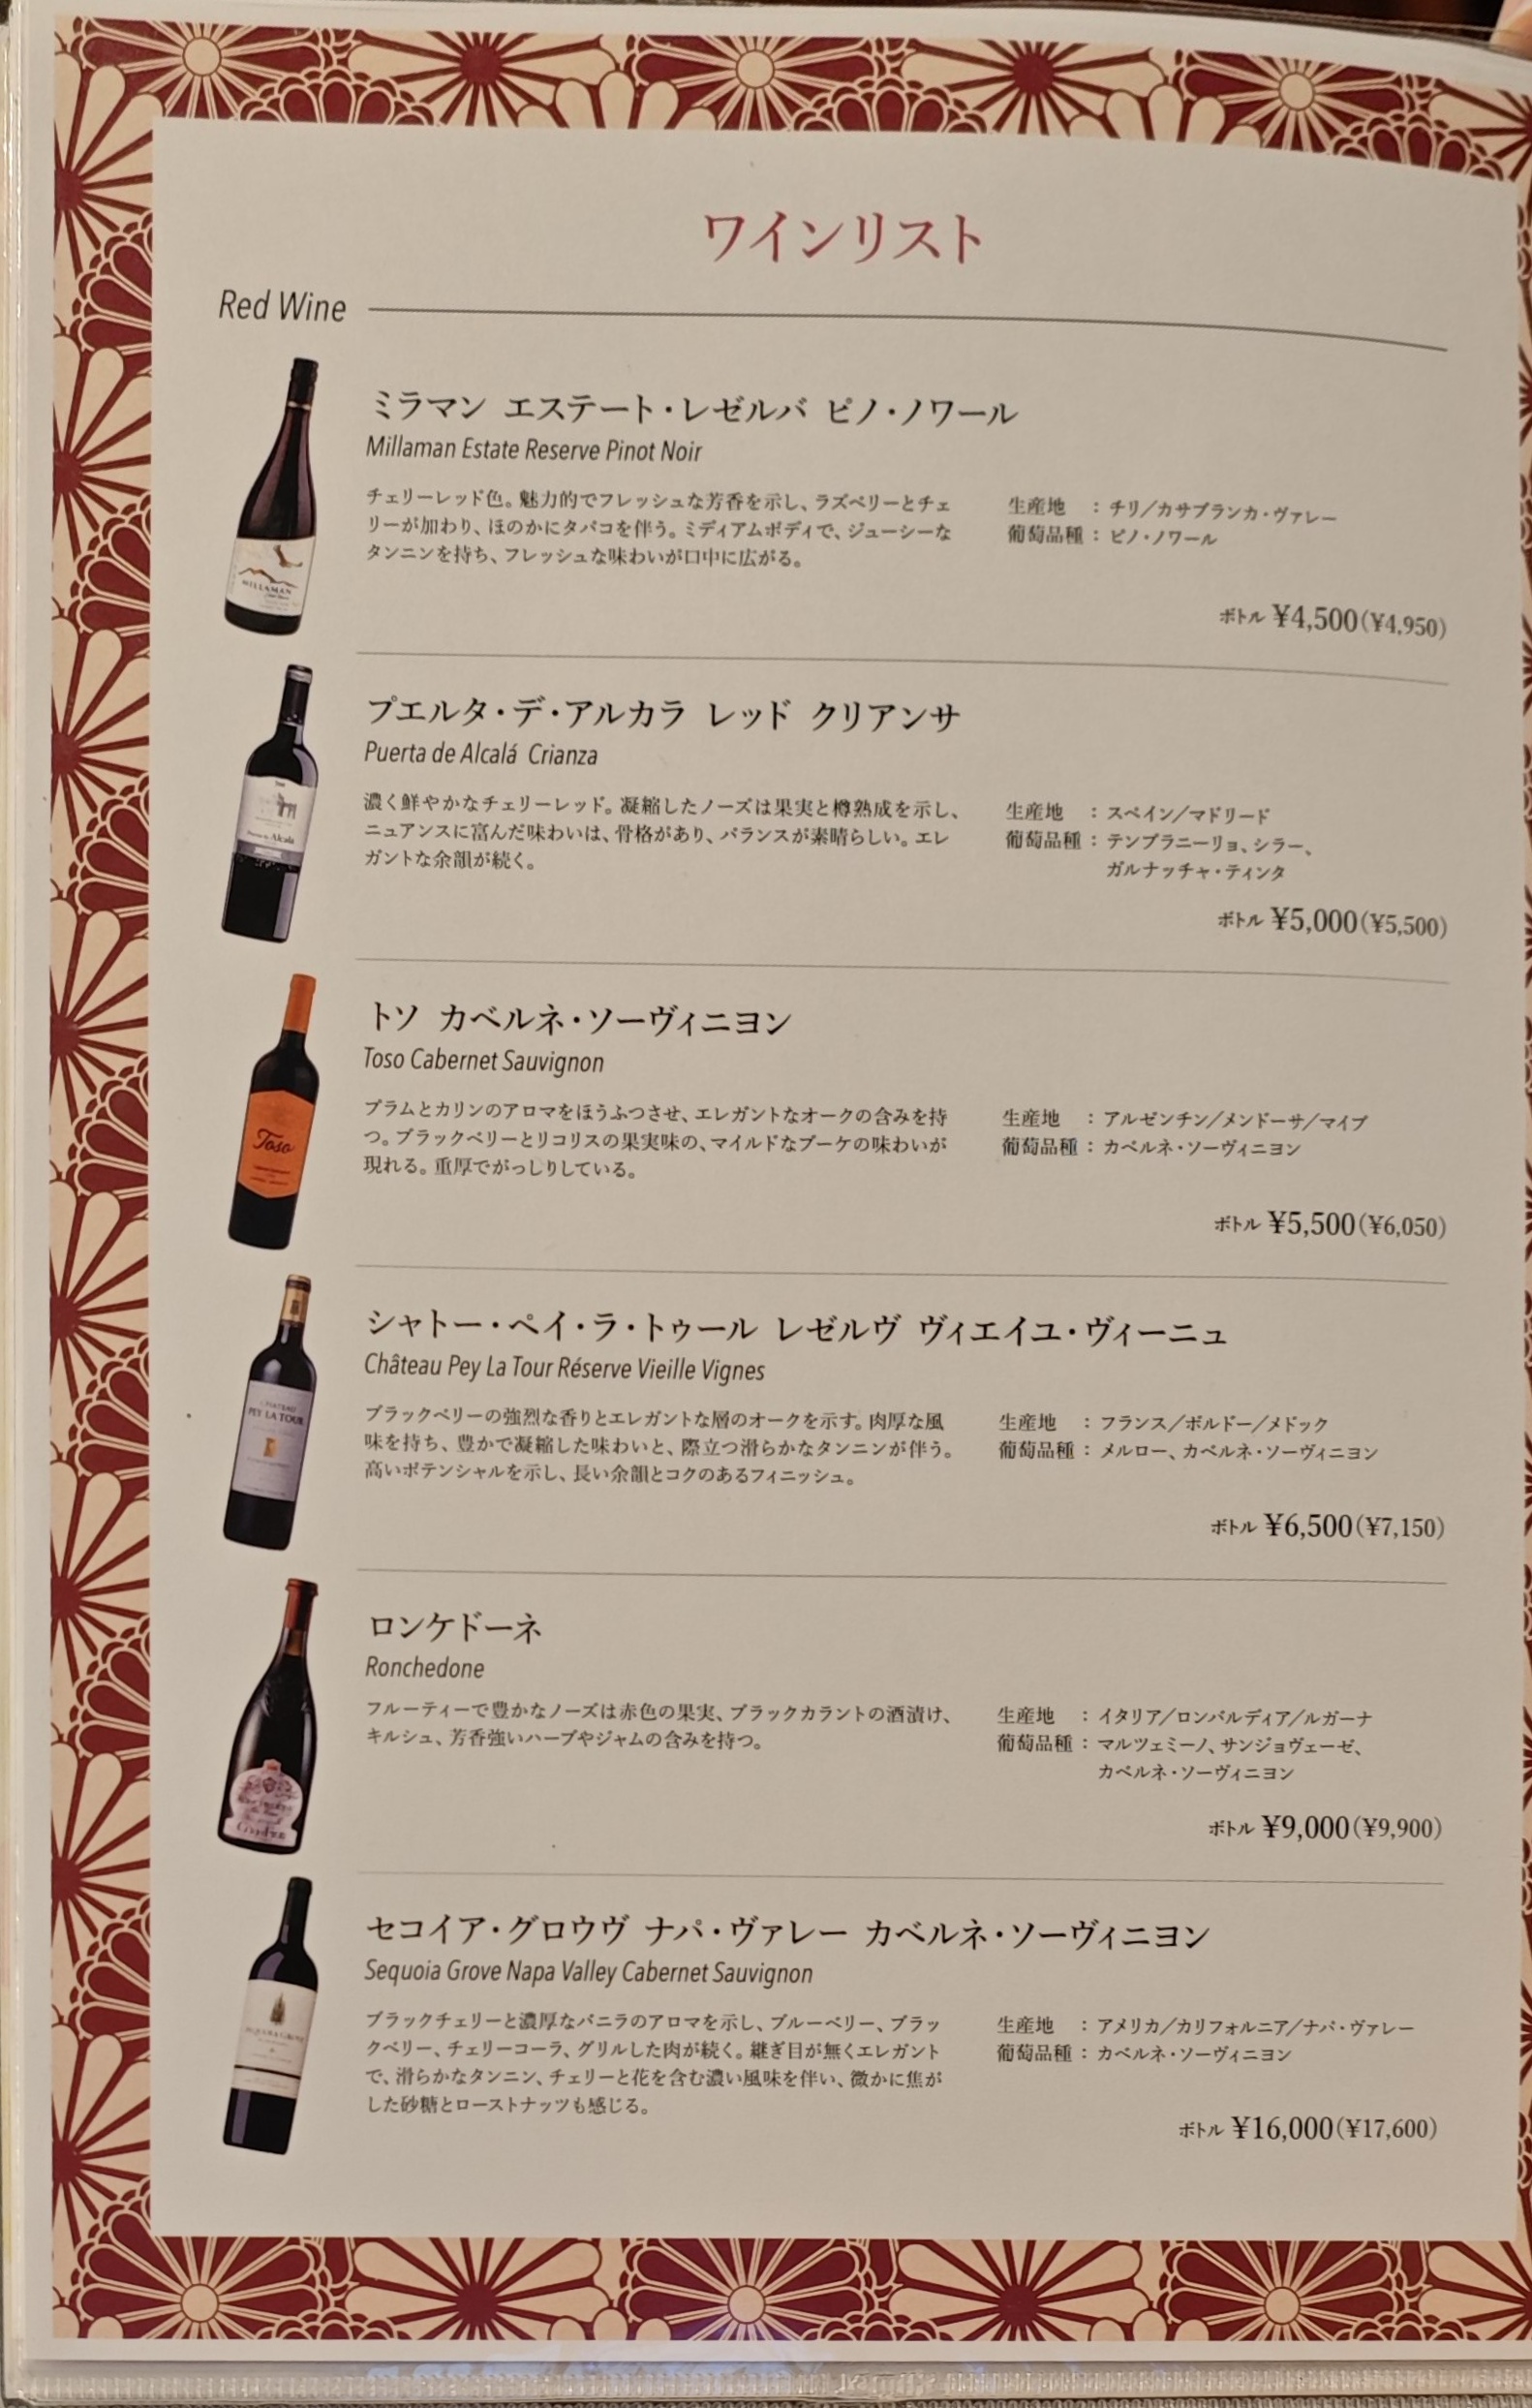 ワインリスト
Red Wine
ミラマン エステート・レゼルバ ピノ・ノワール
Millaman Estate Reserve Pinot Noir
チェリーレッド色。魅力的でフレッシュな芳香を示し、ラズベリーとチェ
リーが加わり、ほのかにタバコを伴う。ミディアムボディで、ジューシーな
タンニンを持ち、フレッシュな味わいが口中に広がる。
生産地 : チリ/カサブランカ・ヴァレー
葡萄品種 : ピノ・ノワール
ボトル ¥4,500(¥4,950)
MILLAMAN
プエルタ・デ・アルカラ レッド クリアンサ
Puerta de Alcalá Crianza
濃く鮮やかなチェリーレッド。凝縮したノーズは果実と樽熟成を示し、
ニュアンスに富んだ味わいは、骨格があり、バランスが素晴らしい。エレ
ガントな余韻が続く。
生産地 : スペイン/マドリード
葡萄品種 : テンプラニーリョ、シラー、
ガルナッチャ・ティンタ
ボトル ¥5,000(¥5,500)
Alcalá
トソ カベルネ・ソーヴィニヨン
Toso Cabernet Sauvignon
プラムとカリンのアロマをほうふつさせ、エレガントなオークの含みを持
つ。ブラックベリーとリコリスの果実味の、マイルドなブーケの味わいが
現れる。重厚でがっしりしている。
生産地 : アルゼンチン/メンドーサ/マイプ
葡萄品種 : カベルネ・ソーヴィニヨン
ボトル ¥5,500(¥6,050)
Toso
シャトー・ペイ・ラ・トゥール レゼルヴ ヴィエイユ・ヴィーニュ
Château Pey La Tour Réserve Vieille Vignes
ブラックベリーの強烈な香りとエレガントな層のオークを示す。肉厚な風
味を持ち、豊かで凝縮した味わいと、際立つ滑らかなタンニンが伴う。
高いポテンシャルを示し、長い余韻とコクのあるフィニッシュ。
生産地 : フランス/ボルドー/メドック
葡萄品種 : メルロー、カベルネ・ソーヴィニヨン
ボトル ¥6,500(¥7,150)
CHATEAU
PEY LA TOUR
ロンケドーネ
Ronchedone
フルーティーで豊かなノーズは赤色の果実、ブラックカラントの酒漬け、
キルシュ、芳香強いハーブやジャムの含みを持つ。
生産地 : イタリア/ロンバルディア/ルガーナ
葡萄品種 : マルツェミーノ、サンジョヴェーゼ、
カベルネ・ソーヴィニヨン
ボトル ¥9,000(¥9,900)
セコイア・グロウヴ ナパ・ヴァレー カベルネ・ソーヴィニヨン
Sequoia Grove Napa Valley Cabernet Sauvignon
ブラックチェリーと濃厚なバニラのアロマを示し、ブルーベリー、ブラッ
クベリー、チェリーコーラ、グリルした肉が続く。継ぎ目が無くエレガント
で、滑らかなタンニン、チェリーと花を含む濃い風味を伴い、微かに焦が
した砂糖とローストナッツも感じる。
生産地 : アメリカ/カリフォルニア/ナパ・ヴァレー
葡萄品種 : カベルネ・ソーヴィニヨン
ボトル ¥16,000(¥17,600)
SEQUOIA GROVE